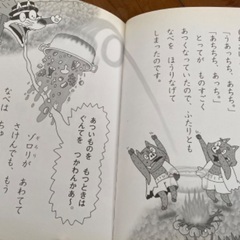 「あちちっ、あちち。」
「あちちち、あっち。」
とってが ものすごく
あつくなっていたので、ふたりとも
なべを ほうりなげて
しまったのです。
あついものを
もつときは
ぐんてを
つかわんかあ〜。
ゾロリが あわてて
さけんでも もう
なべは